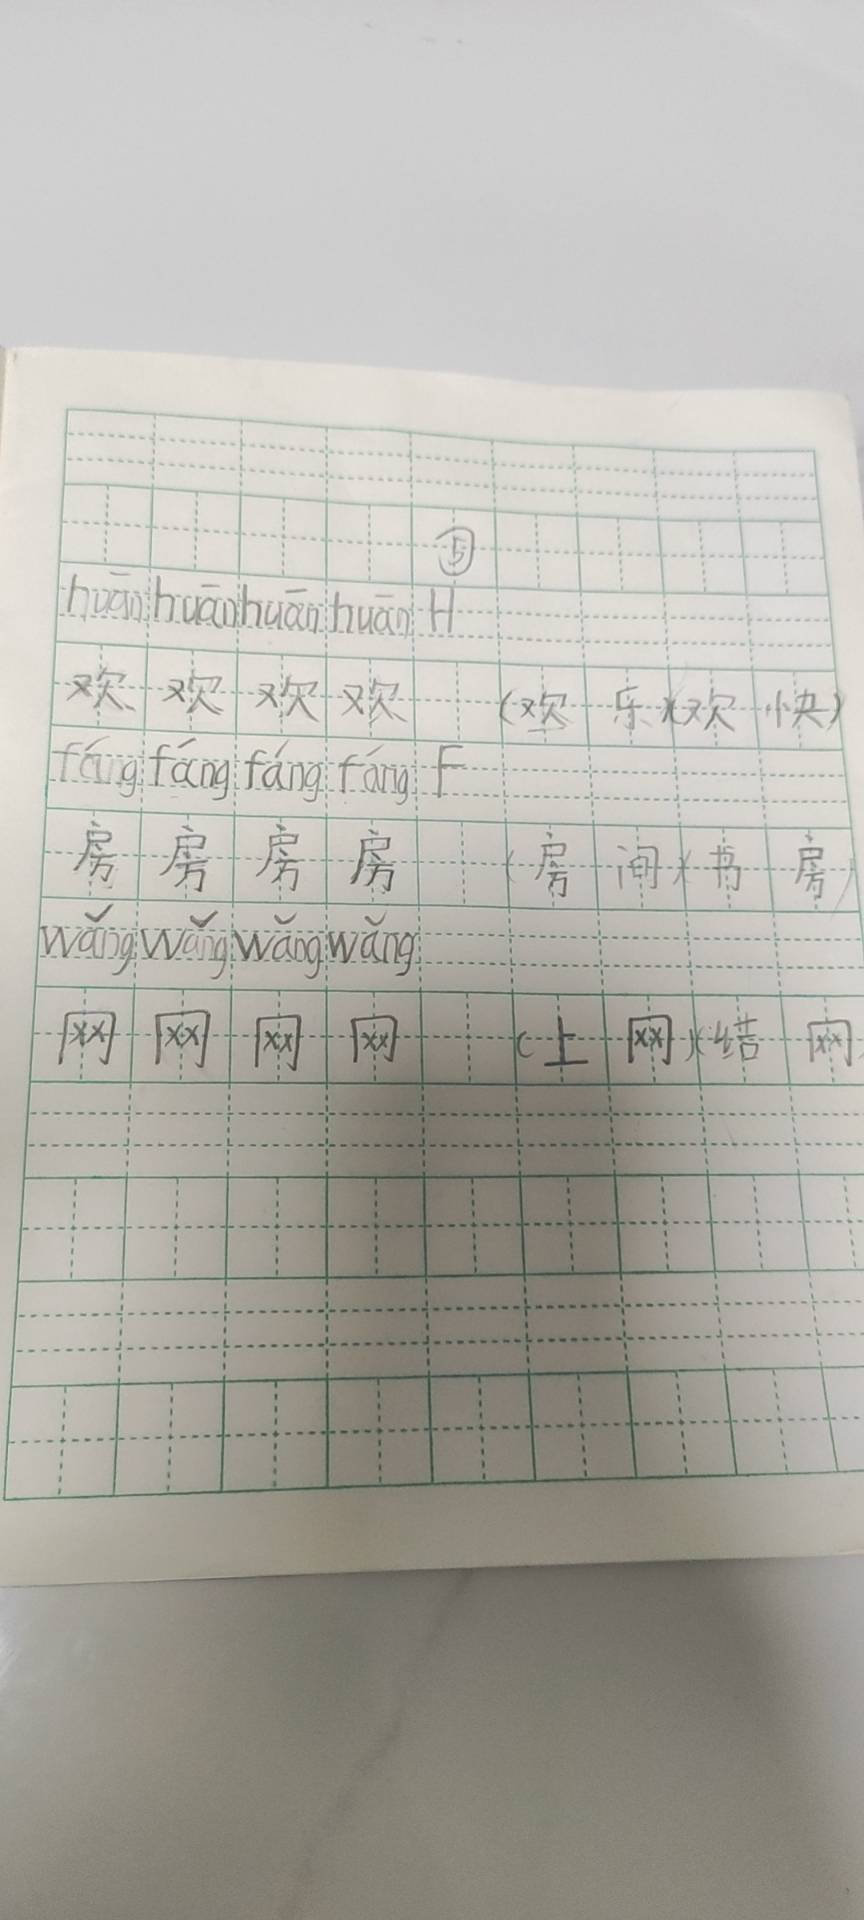 ⑤
huān huān huān huān H
欢 欢 欢 欢 (欢 乐)(欢 快)
fáng fáng fáng fáng F
房 房 房 房 (房 间)(书 房)
wǎng wǎng wǎng wǎng
网 网 网 网 (上 网)(结 网